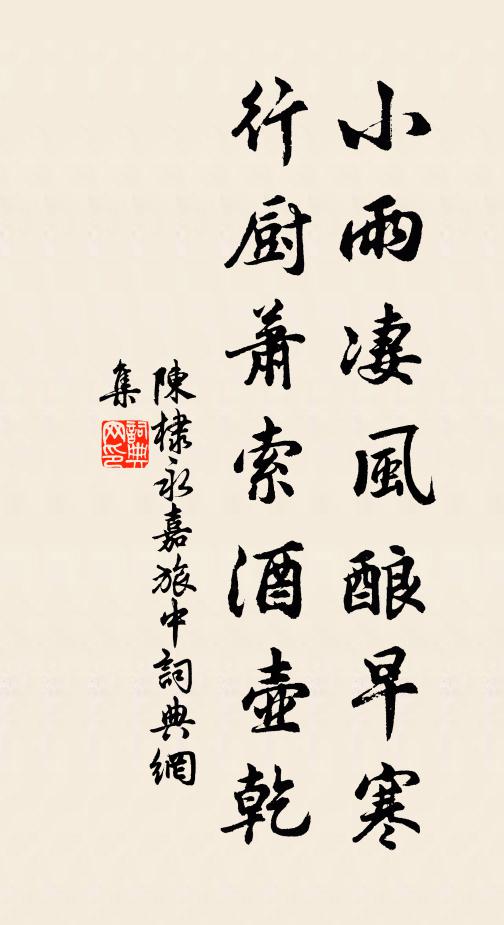 小雨凄風酿早寒
行厨蕭索酒壺乾
陳棣永嘉旅中詞典網
集
詞典網印